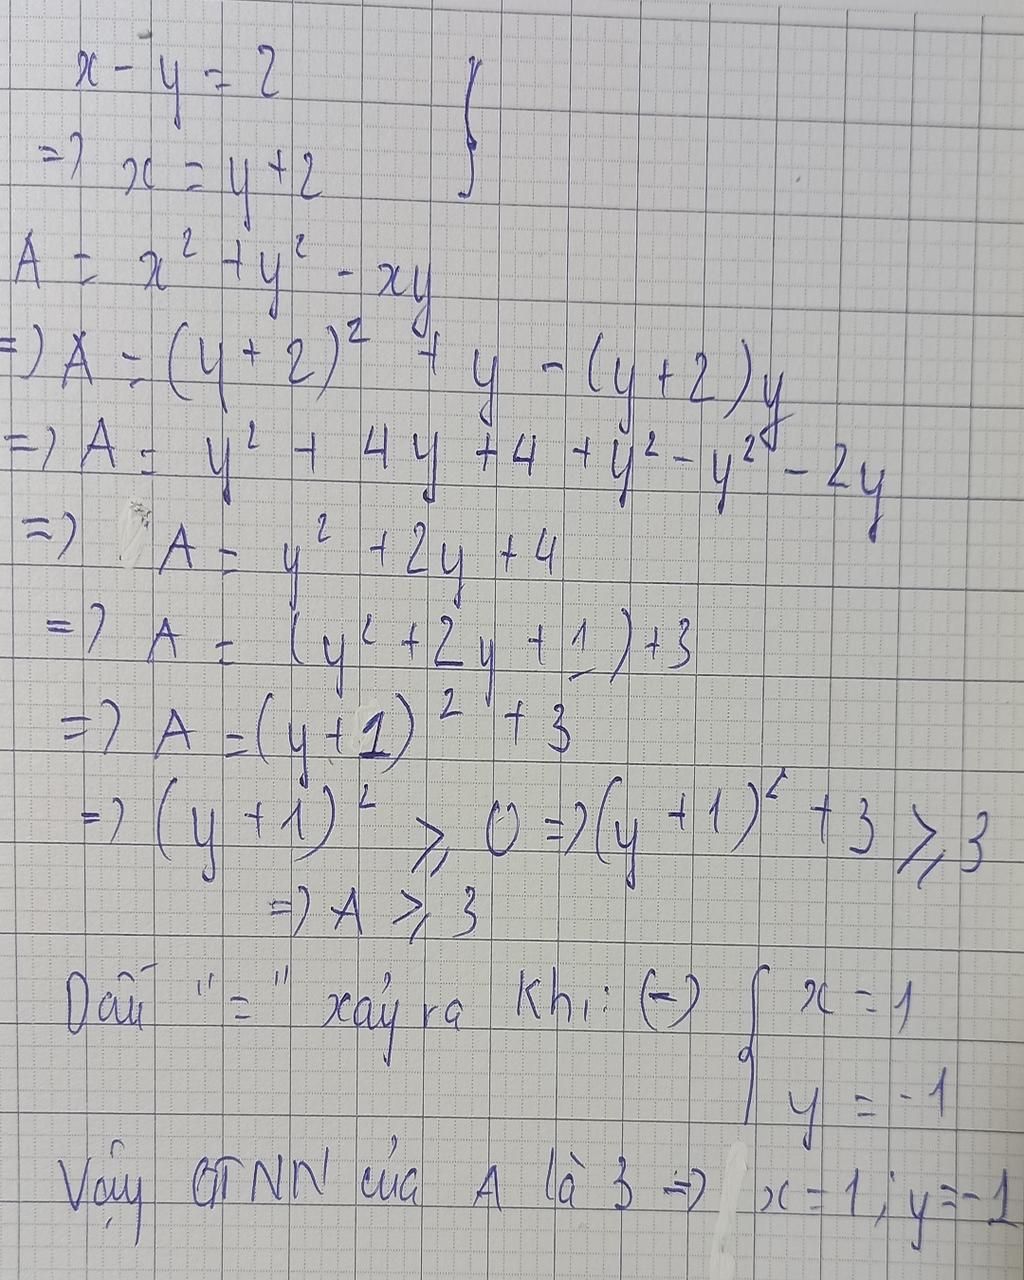 x - y = 2
=> x = y + 2
A = x² + y² - xy
=> A = (y + 2)² + y - (y + 2)y
=> A = y² + 4y + 4 + y² - y² - 2y
=> A = y² + 2y + 4
=> A = (y² + 2y + 1) + 3
=> A = (y + 1)² + 3
=> (y + 1)² ⩾ 0 => (y + 1)² + 3 ⩾ 3
=> A ⩾ 3
Dấu "=" xảy ra khi: (=) { x = 1
y = -1
Vậy GTNN của A là 3 => x = 1; y = -1